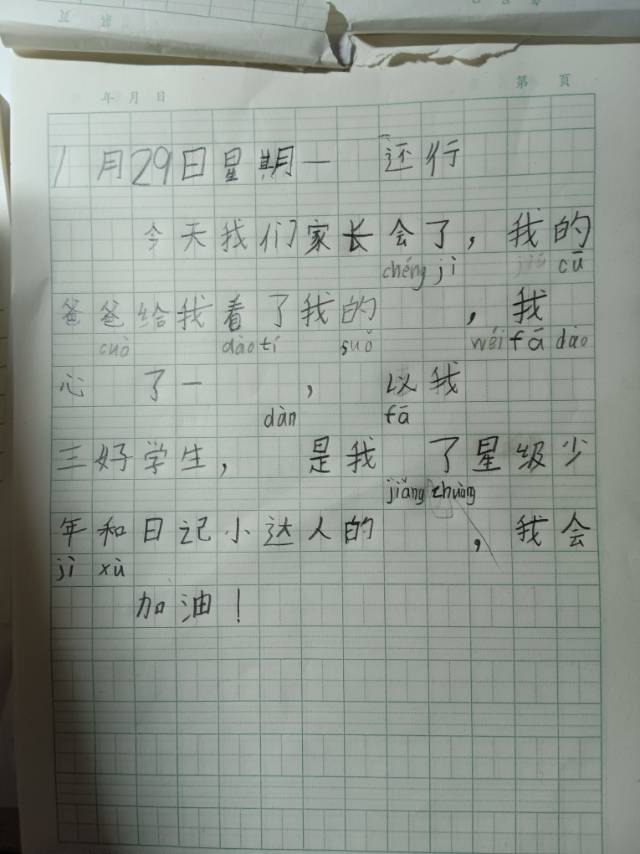 年 月 日
第 頁
1月29日星期一 还行
今天我们家长会了，我的
chéng jì cū
爸爸给我看了我的 ，我
cuò dào tí suǒ wéi fā dào
心 了一 ， 以我
dàn fā
三好学生， 是我 了星级少
jiǎng zhuàng
年和日记小达人的 ，我会
jì xù
加油！